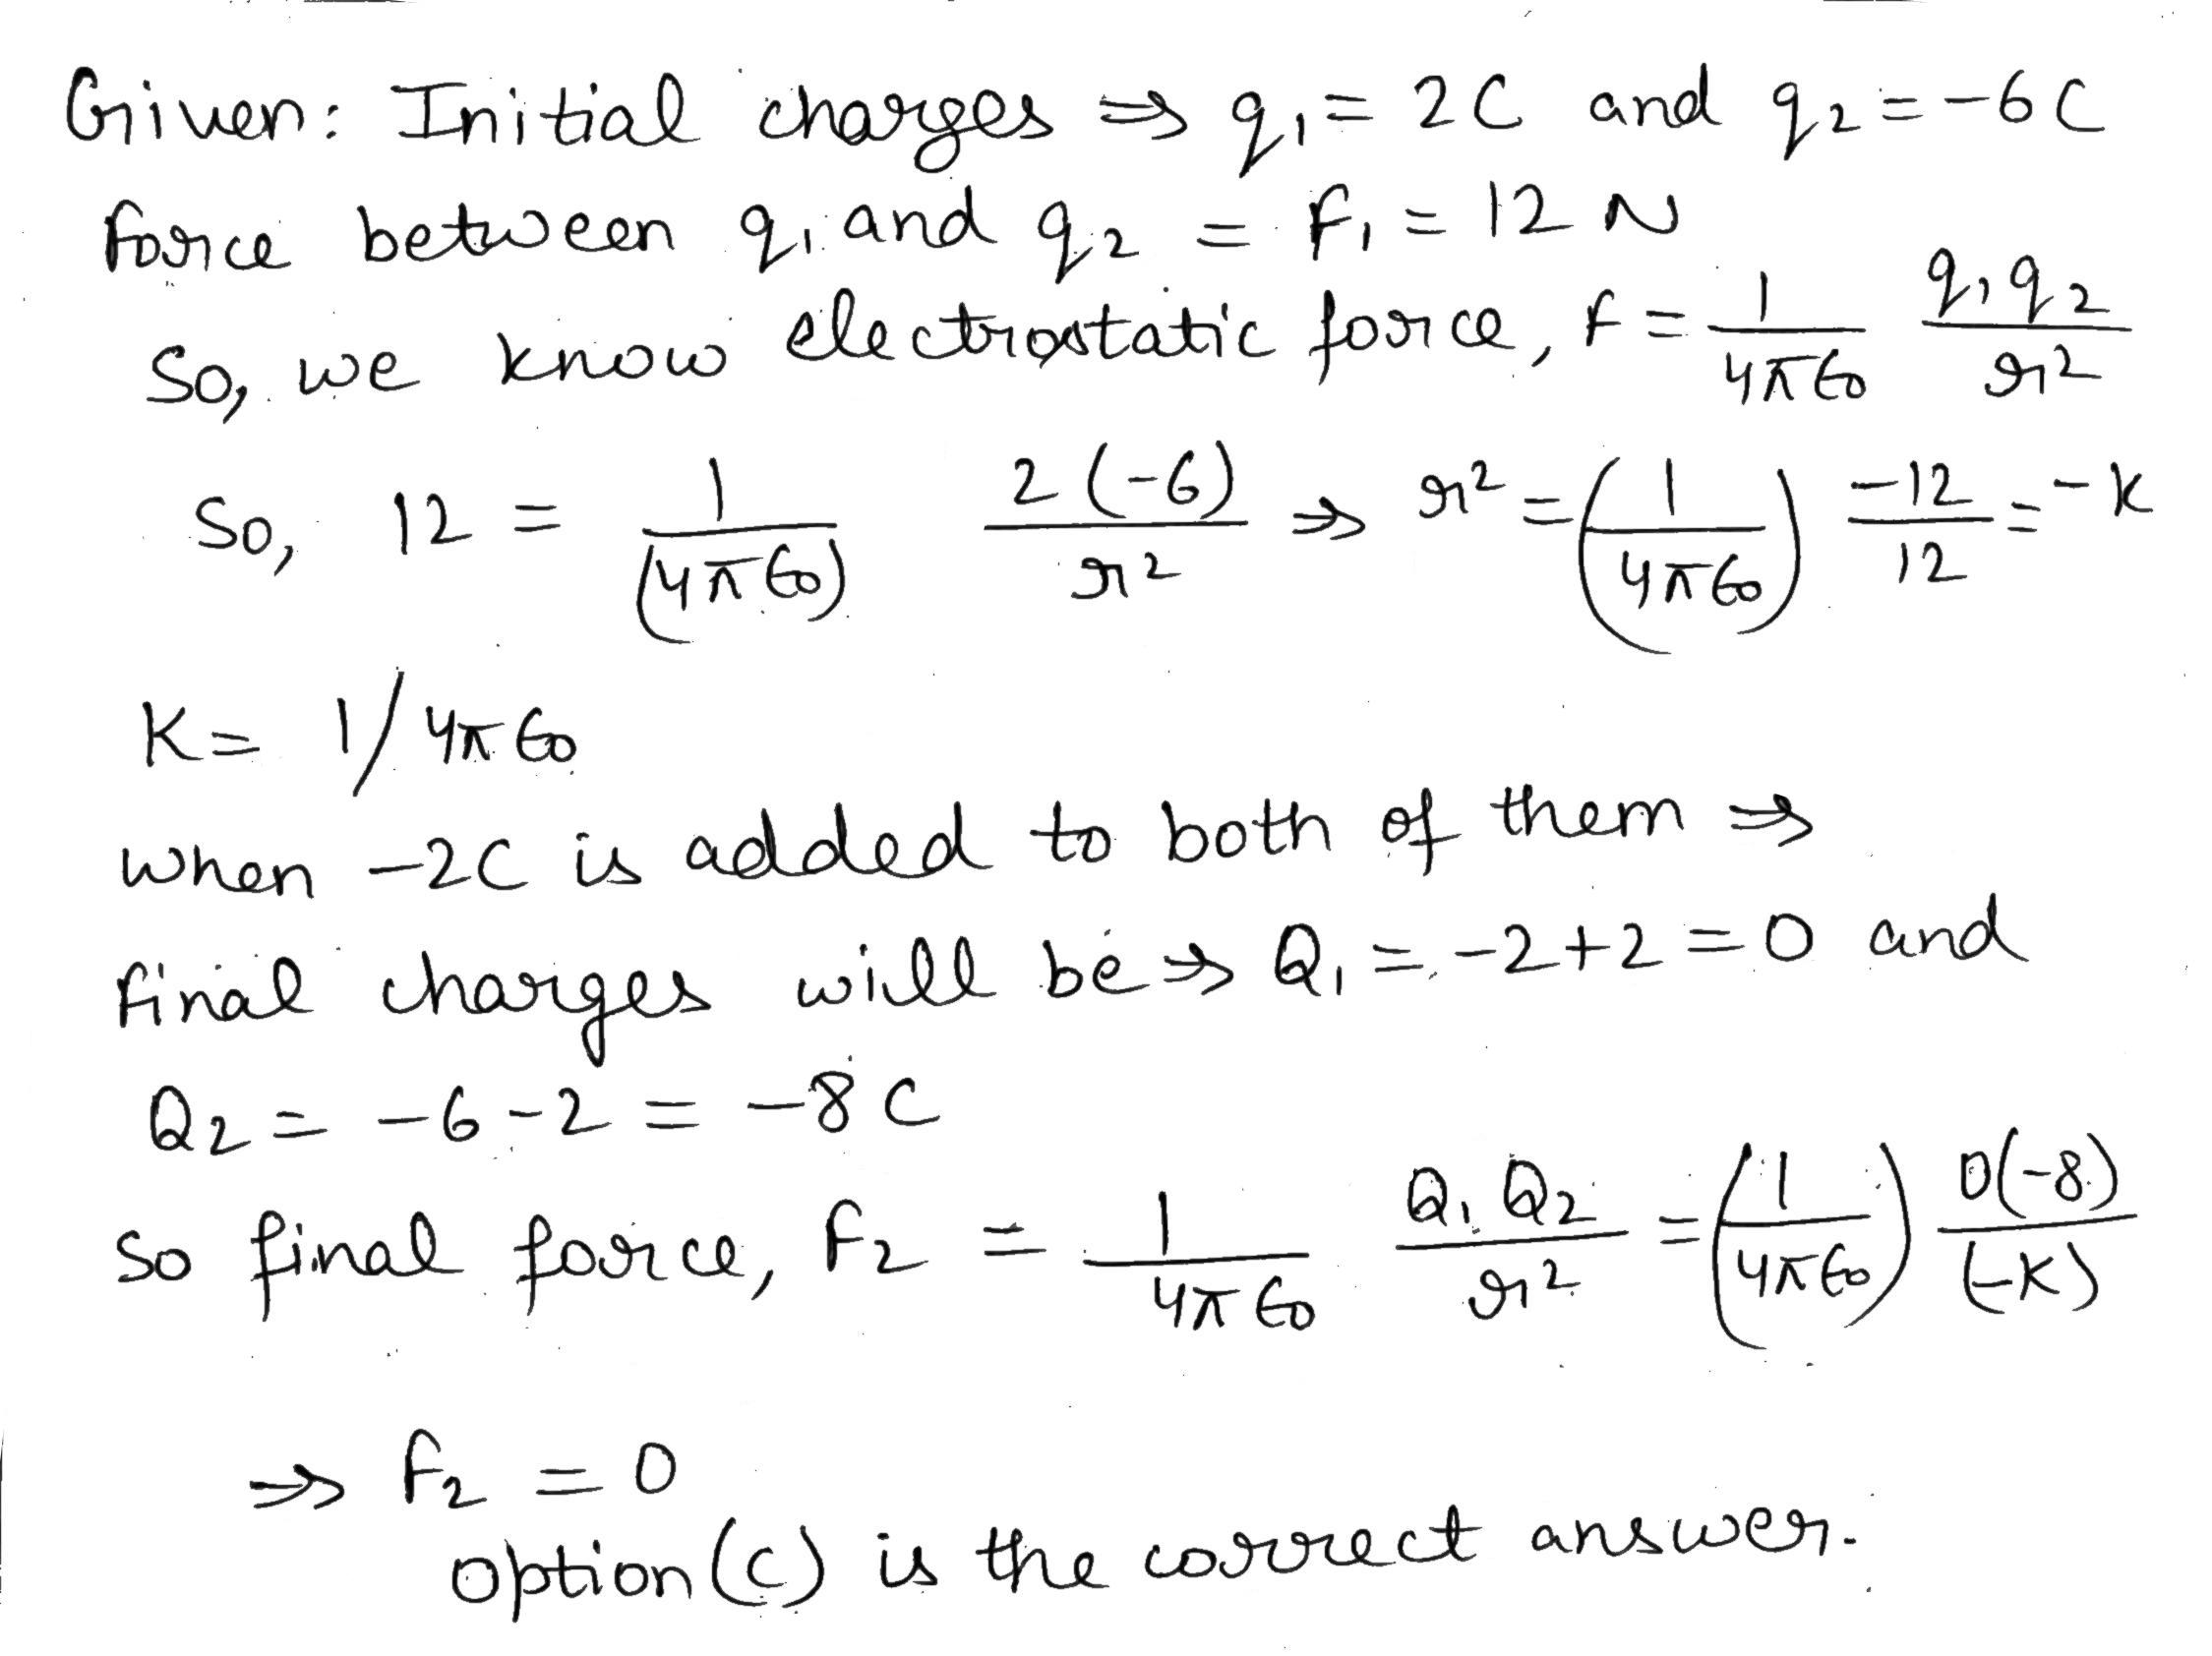 Given: Initial charges ⇒ q₁ = 2C and q₂ = -6C
Force between q₁ and q₂ = F₁ = 12 N
So, we know electrostatic force, F = 1/4πϵ₀ q₁q₂/r²
So, 12 = 1/(4πϵ₀) 2(-6)/r² ⇒ r² = (1/4πϵ₀) -12/12 = -K
K = 1/4πϵ₀
When -2C is added to both of them ⇒
Final charges will be ⇒ Q₁ = -2+2 = 0 and
Q₂ = -6-2 = -8C
So final force, F₂ = 1/4πϵ₀ Q₁Q₂/r² = (1/4πϵ₀) 0(-8)/(-K)
⇒ F₂ = 0
Option (c) is the correct answer.